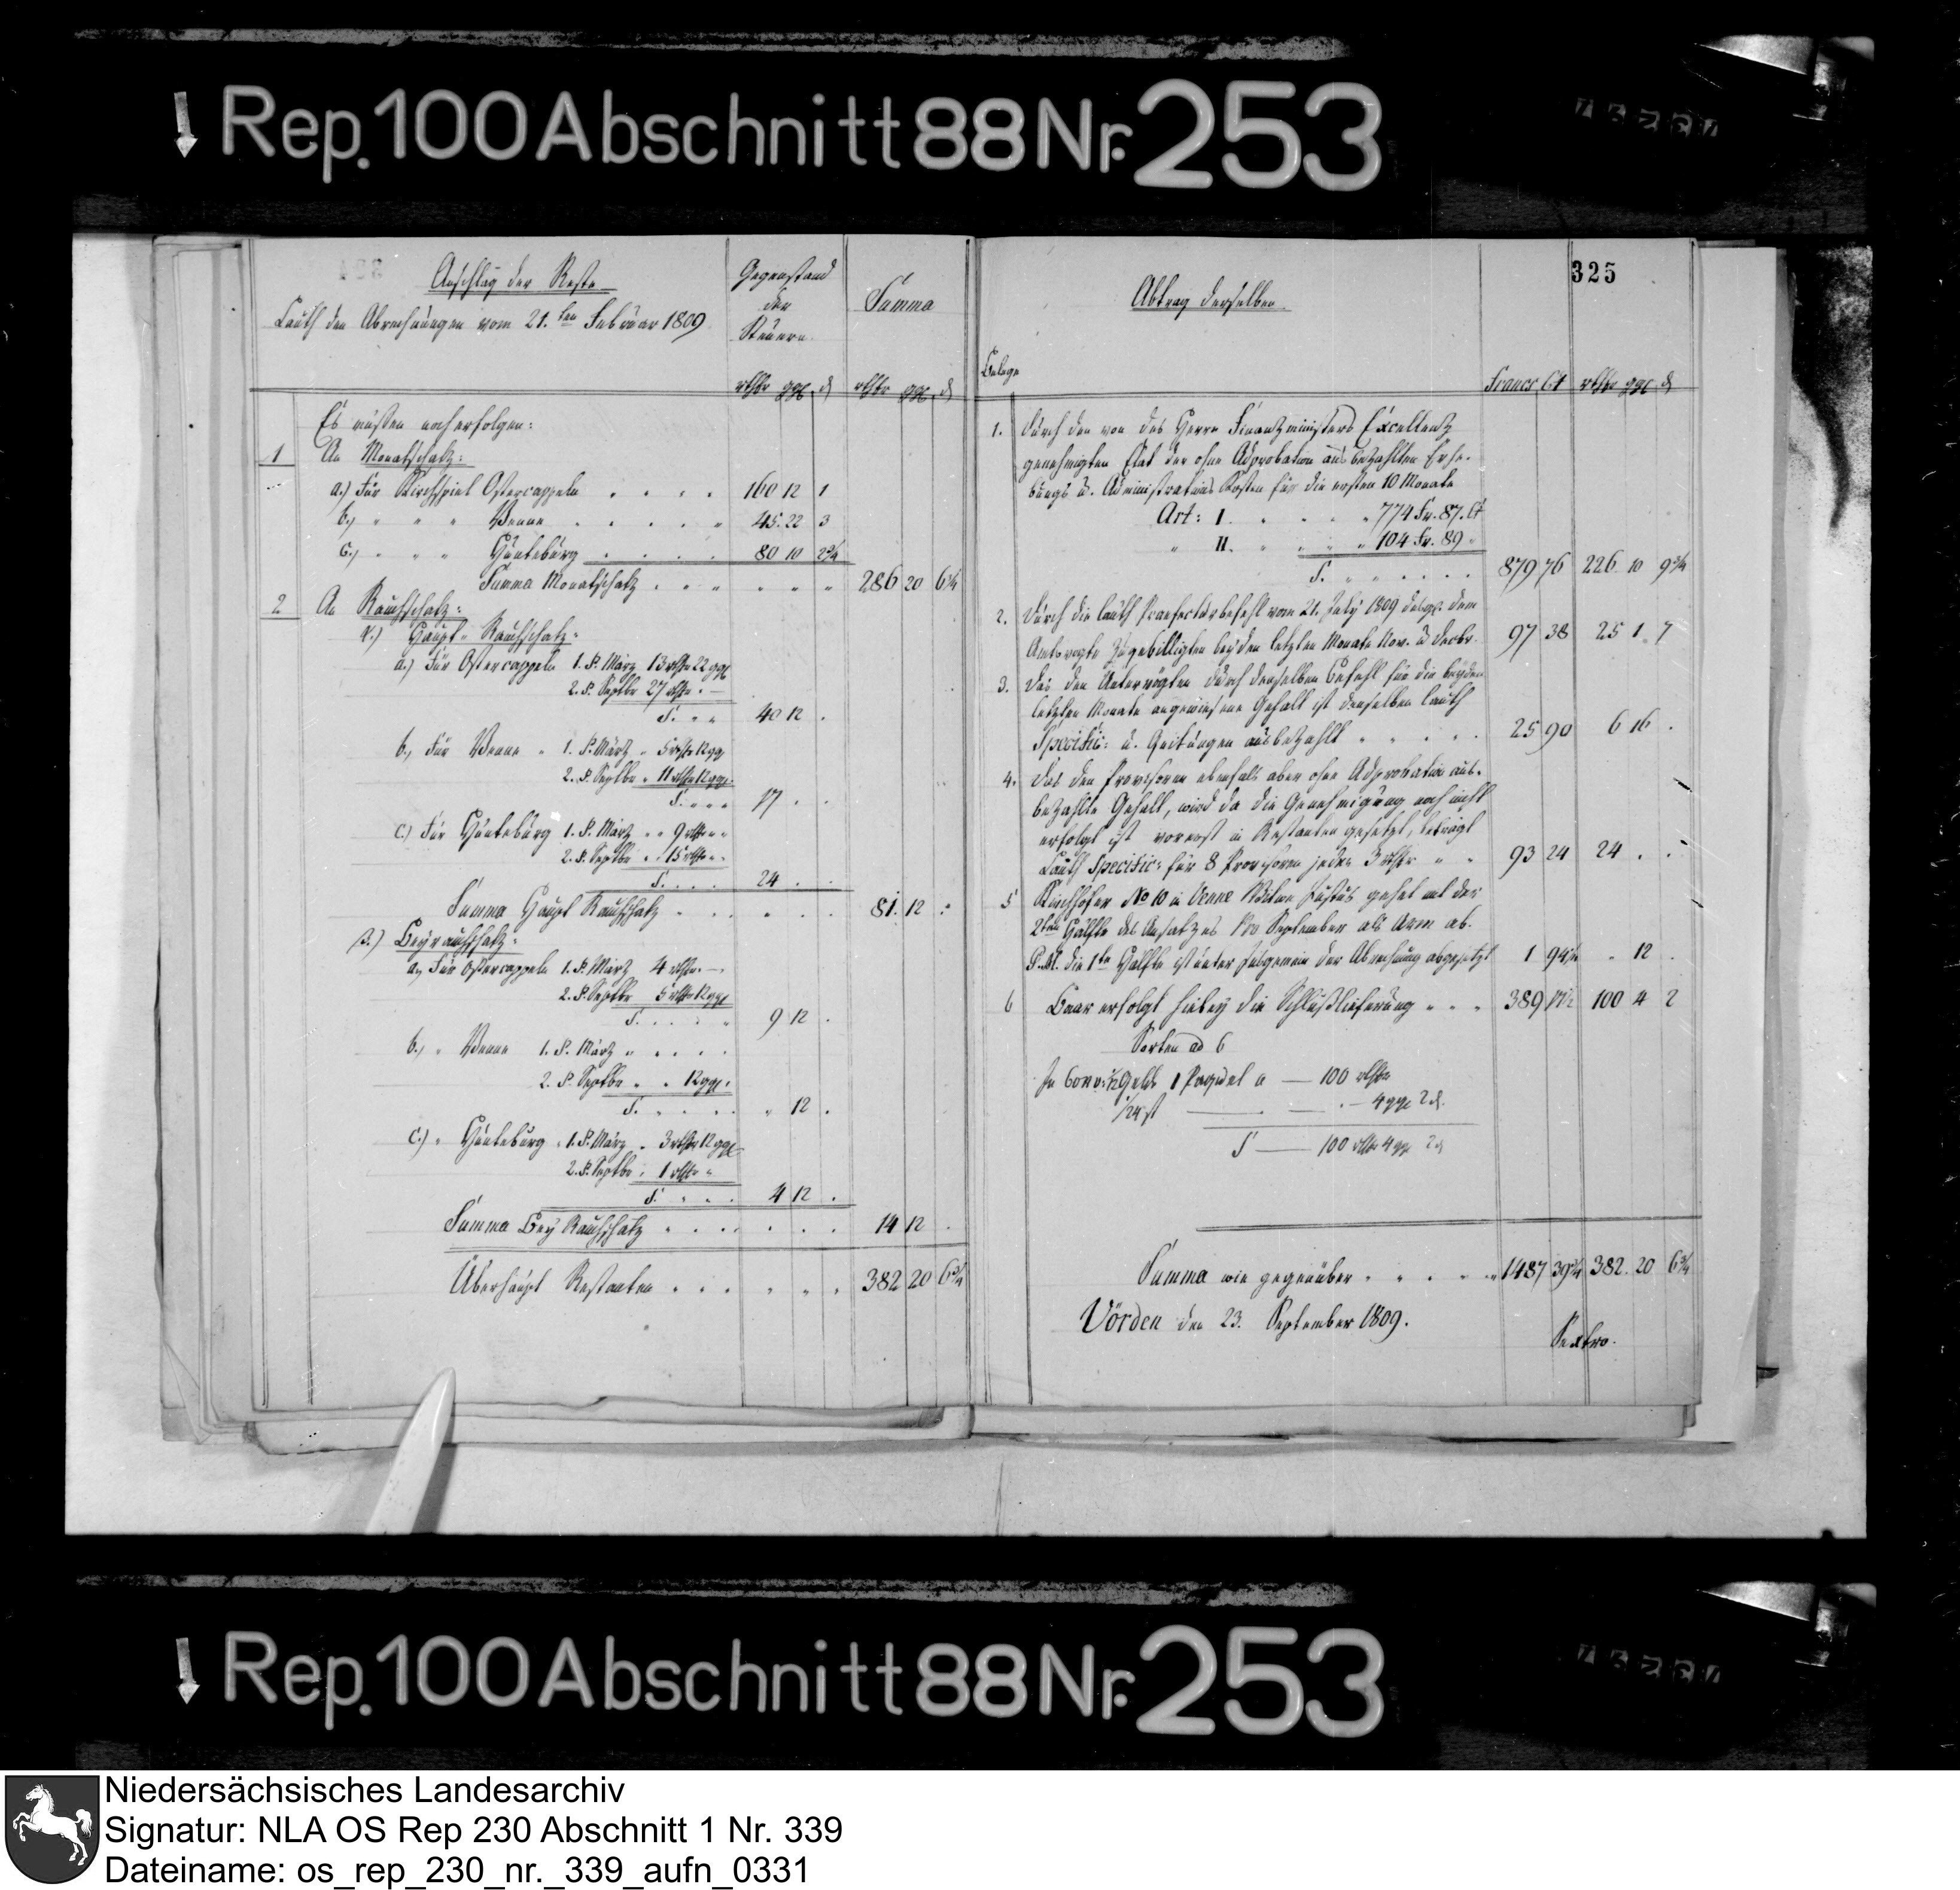 Rep. 100 Abschnitt 88 Nr. 253
Anschlag der Reste
Lauth den Abrechnungen vom 21.ten Februar 1809
Gegenstand
der
Steuern.
Summa
rthlr ggl. d
rthlr ggl. d
Es müssen noch erfolgen:
1 An Monatschatz:
a.) Für Kirchspiel Ostercappeln . . . . 160 12 1
b.) " " " Venne . . . . . 45. 22 3
c.) " " " Hünteburg . . . . 80 10 2¾
Summa Monatschatz . . . . . . . 286 20 6¾
2 An Rauchschatz:
A.) Haupt-Rauchschatz:
a.) Für Ostercappeln 1. P. März 13 rthlr 22 ggl
2. P. Septbr 27 rthlr. —
S. . . 40 12 .
b.) Für Venne " 1. P. März " 5 rthlr 12 ggl
2. P. Septbr " 11 rthlr 12 ggl.
S. . . . 17 . .
c.) Für Hünteburg 1. P. März . . 9 rthlr . .
2. P. Septbr . . 15 rthlr . .
S. . . . 24 . .
Summa Haupt Rauchschatz . . . . . 81. 12 .
B.) Beyrauchschatz:
a.) Für Ostercappeln 1. P. März 4 rthlr. —
2. P. Septbr 5 rthlr 12 ggl
S. . . . . 9 12 .
b.) " Venne 1. P. März " . . . .
2. P. Septbr " . 12 ggl.
S. . . . . " 12 .
c.) " Hünteburg " 1. P. März " 3 rthlr 12 ggl
2. P. Septbr . 1 rthlr "
S. . . . 4 12 .
Summa Bey Rauchschatz . . . . . . . 14 12 .
Überhaupt Restanten . . . . . . 382 20 6¾
325
Abtrag derselben.
Belege
Francs Ct rthlr ggl. d
1. Durch den von des Herrn Finanzministers Excellentz
genehmigten Etat der ohne Adprobation ausbezahlten Erhe-
bungs u. Administrations Kosten für die ersten 10 Monate
Art: I. . . . . 774 Fr. 87. Ct
" II. . . . . 104 Fr. 89 "
S. " . . . . . 879 76 226. 10 9¾
2. Durch die lauth Praefecturbefehl vom 21. July 1809 dem
Amtsvogte zugebilligten beyden letzten Monate Nov. u. Decbr. 97 38 25 1. 7
3. Das den Untervögten durch denselben Befehl für die beyden
letzten Monate angewiesene Gehalt ist denselben lauth
Specific: u. Quitungen ausbezahlt . . . . . 25 90 6 16 .
4. Das den Provisoren ebenfals aber ohne Adprobation aus-
bezahlte Gehalt, wird da die Genehmigung noch nicht
erfolgt ist vorerst in Restanten gesetzt, beträgt
Lauth Specific: für 8 Provisoren jeder 3 rthlr " " 93 24 24 . .
5 Kirchhofer No 10 in Venne Witwe Justus gehet mit der
2ten Hälfte des Ansatzes Pro September als Arm ab.
P.M. die 1te Hälfte ist unter Insgemein der Abrechnung abgesetzt 1 94½ " 12 .
6 Baar erfolgt hiebey die Schlußlieferung . . . 389 17½ 100 4 2
Sorten ad 6
In Conv: ½ Gelde 1 Paquet a — 100 rthlr
1/24 st — . — . — 4 ggl 2 d.
S — 100 rthlr 4 ggl 2 d
Summa wie gegenüber . . . . . 1487 39¾ 382. 20 6¾
Vörden den 23. September 1809.
Sextro.
Rep. 100 Abschnitt 88 Nr. 253
Niedersächsisches Landesarchiv
Signatur: NLA OS Rep 230 Abschnitt 1 Nr. 339
Dateiname: os_rep_230_nr._339_aufn_0331